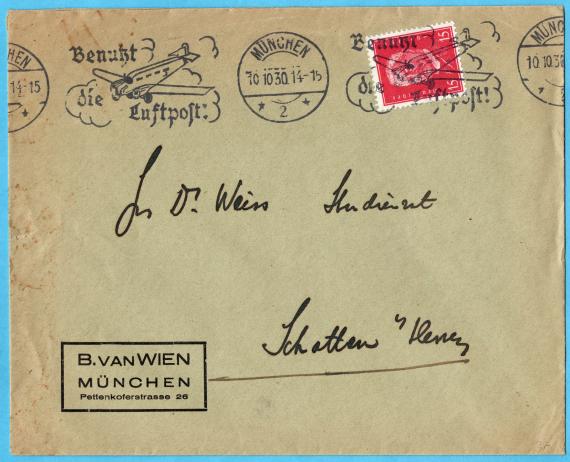 Benutzt
die Luftpost!
MÜNCHEN
10.10.30.14-15
2
Benutzt
die Luftpost!
15
15
MÜNCHEN
10.10.30
14-15
Dr. Weiss
Schotten
B. VAN WIEN
MÜNCHEN
Pettenkoferstrasse 26